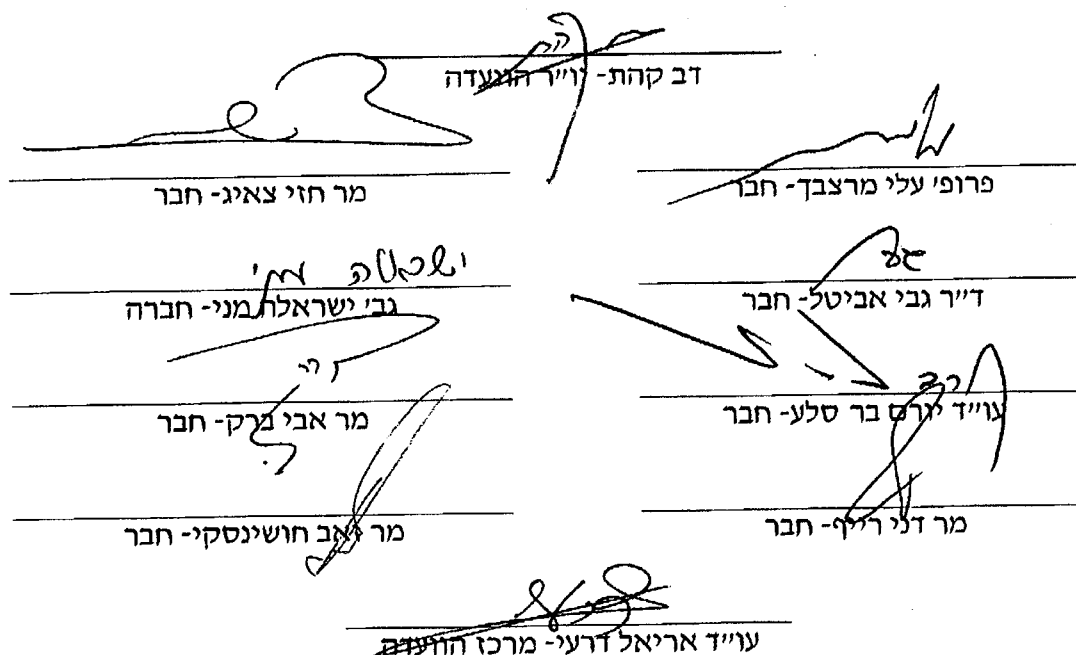 דב קהת- יו״ר הוועדה
פרופ׳ עלי מרצבך- חבר
מר חזי צאיג- חבר
ד״ר גבי אביטל- חבר
ישראלה מני
גב׳ ישראלה מני- חברה
עו״ד יורם בר סלע- חבר
מר אבי ברק- חבר
מר דני רייף- חבר
מר זאב חושינסקי- חבר
עו״ד אריאל דרעי- מרכז הוועדה